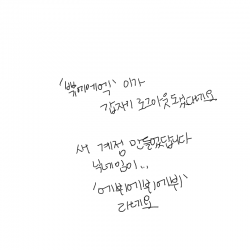 '뿌에에엑' 이가
갑자기 로그아웃 되었대네요
새 계정 만들었답니다
닉네임이..
'에뷔에뷔에뷔'
라네요